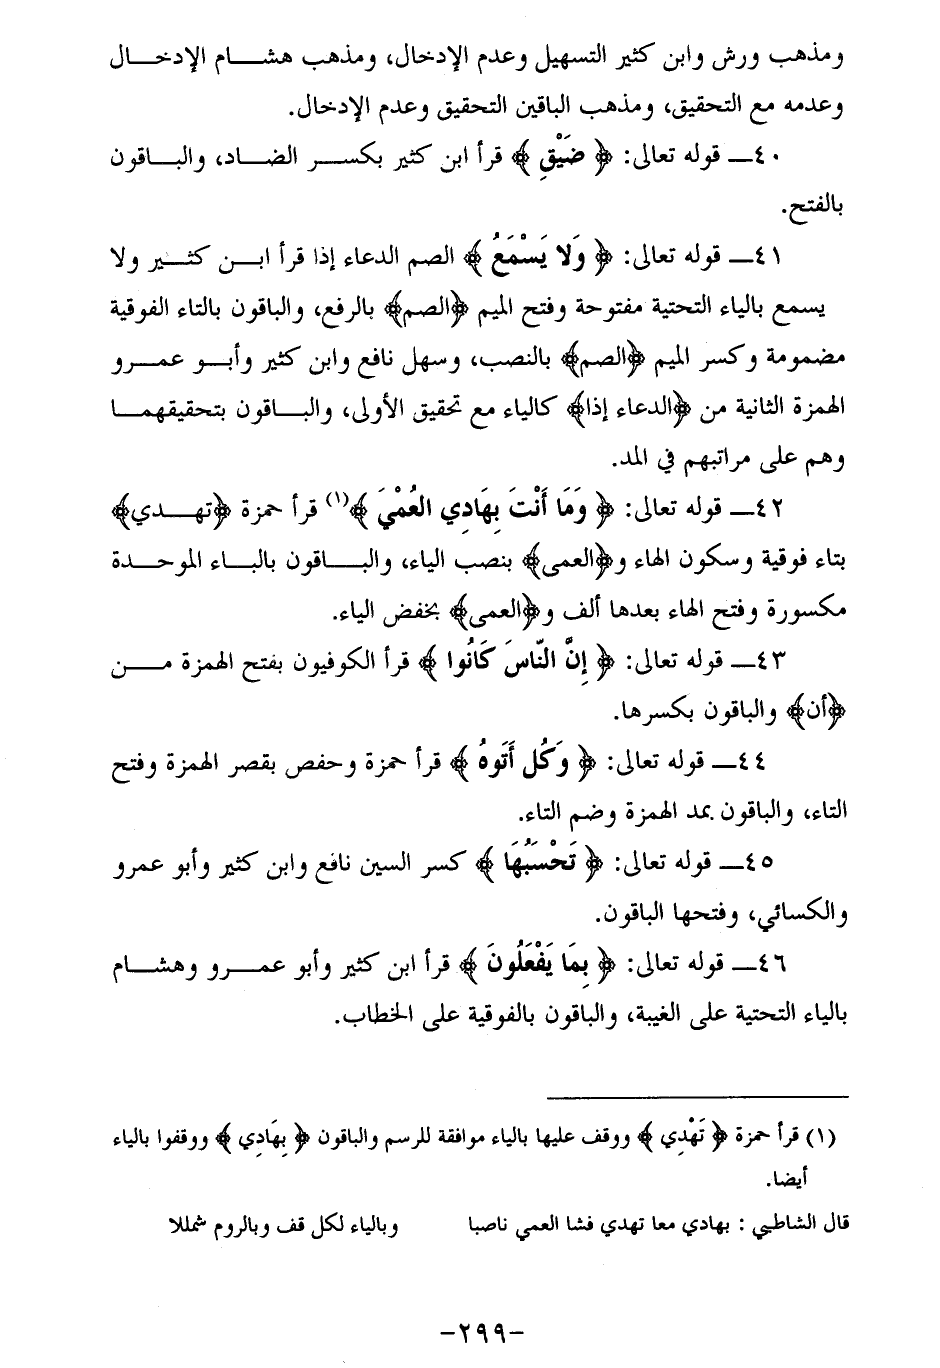 ومذهب ورش وابن كثير التسهيل وعدم الإدخال، ومذهب هشام الإدخال
وعدمه مع التحقيق، ومذهب الباقين التحقيق وعدم الإدخال.
٤٠ـ قوله تعالى: ﴿ ضَيْقٍ ﴾ قرأ ابن كثير بكسر الضاد، والباقون
بالفتح.
٤١ـ قوله تعالى: ﴿ وَلا يَسْمَعُ ﴾ الصم الدعاء إذا قرأ ابن كثير ولا
يسمع بالياء التحتية مفتوحة وفتح الميم ﴿الصم﴾ بالرفع، والباقون بالتاء الفوقية
مضمومة وكسر الميم ﴿الصم﴾ بالنصب، وسهل نافع وابن كثير وأبو عمرو
الهمزة الثانية من ﴿الدعاء إذا﴾ كالياء مع تحقيق الأولى، والباقون بتحقيقهما
وهم على مراتبهم في المد.
٤٢ـ قوله تعالى: ﴿ وَمَا أَنْتَ بِهَادِي العُمْيَ ﴾(١) قرأ حمزة ﴿تهدي﴾
بتاء فوقية وسكون الهاء و﴿العمى﴾ بنصب الياء، والباقون بالباء الموحدة
مكسورة وفتح الهاء بعدها ألف و﴿العمى﴾ بخفض الياء.
٤٣ـ قوله تعالى: ﴿ إِنَّ النّاسَ كَانُوا ﴾ قرأ الكوفيون بفتح الهمزة من
﴿أن﴾ والباقون بكسرها.
٤٤ـ قوله تعالى: ﴿ وَكُل أَتَوهُ ﴾ قرأ حمزة وحفص بقصر الهمزة وفتح
التاء، والباقون بمد الهمزة وضم التاء.
٤٥ـ قوله تعالى: ﴿ تَحْسَبُهَا ﴾ كسر السين نافع وابن كثير وأبو عمرو
والكسائي، وفتحها الباقون.
٤٦ـ قوله تعالى: ﴿ بِمَا يَفْعَلُونَ ﴾ قرأ ابن كثير وأبو عمرو وهشام
بالياء التحتية على الغيبة، والباقون بالفوقية على الخطاب.
(١) قرأ حمزة ﴿ تَهْدِي ﴾ ووقف عليها بالياء موافقة للرسم والباقون ﴿ بِهَادِي ﴾ ووقفوا بالياء
أيضا.
قال الشاطبي : بهادي معا تهدي فشا العمي ناصبا وبالياء لكل قف وبالروم شمللا
-٢٩٩-